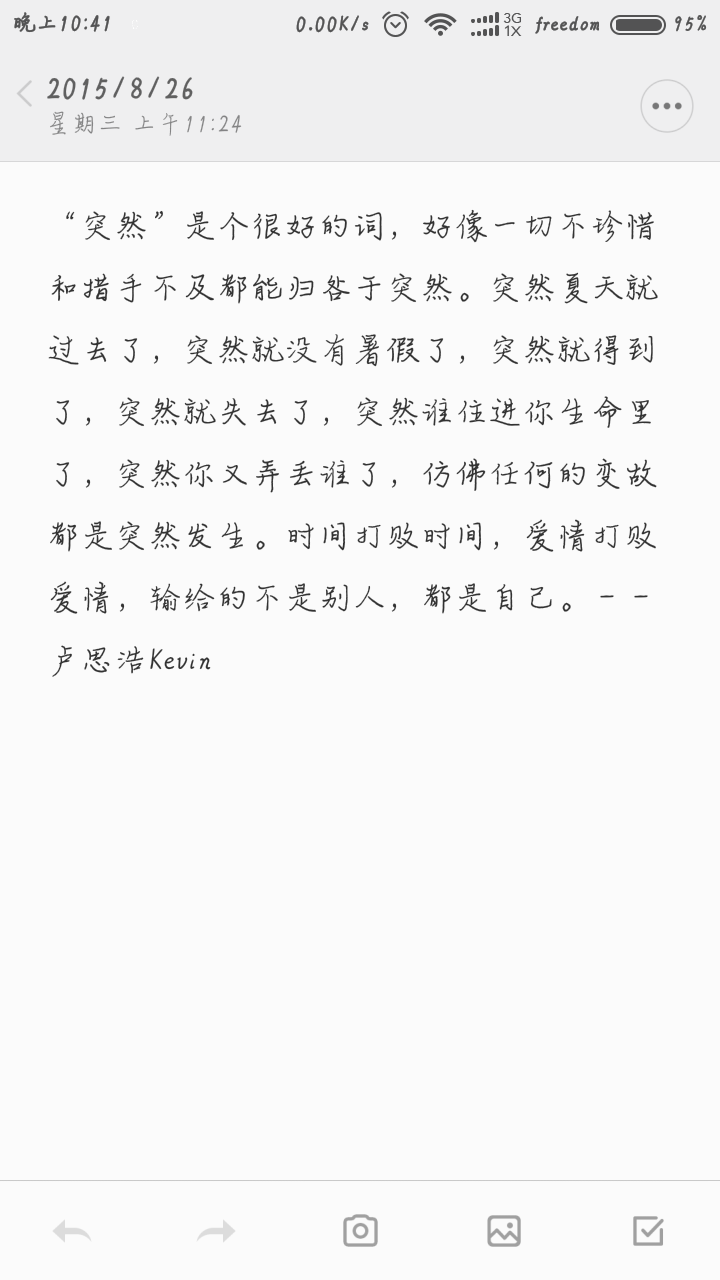 晚上10:41 0.00K/s 3G 1X freedom 95%
2015/8/26
星期三 上午11:24
“突然”是个很好的词，好像一切不珍惜
和措手不及都能归咎于突然。突然夏天就
过去了，突然就没有暑假了，突然就得到
了，突然就失去了，突然谁住进你生命里
了，突然你又弄丢谁了，仿佛任何的变故
都是突然发生。时间打败时间，爱情打败
爱情，输给的不是别人，都是自己。－－
卢思浩Kevin